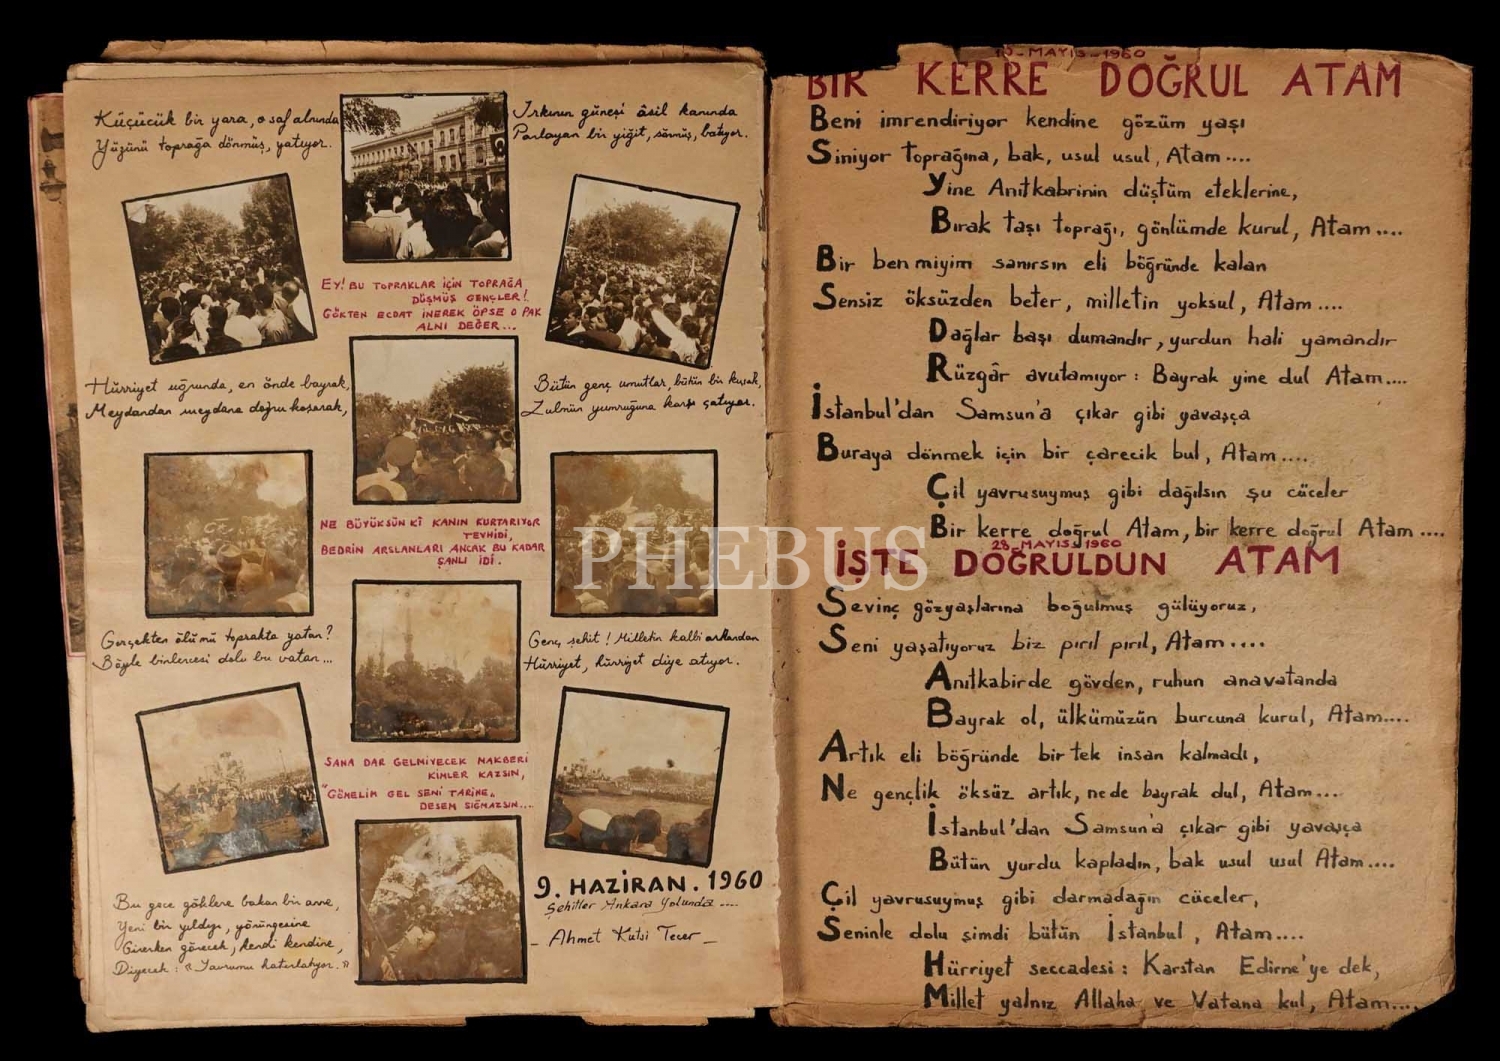 Küçücük bir yara, o saf alnında
Yüzünü toprağa dönmüş, yatıyor.
Irkının güneşi âsil kanında
Parlayan bir yiğit, sönmüş, batıyor.
EY! BU TOPRAKLAR İÇİN TOPRAĞA
DÜŞMÜŞ GENÇLER!
GÖKTEN ECDAT İNEREK ÖPSE O PAK
ALNI DEĞER...
Hürriyet uğrunda, en önde bayrak,
Meydandan meydana doğru koşarak,
Bütün genç umutlar, bütün bir kuşak,
Zulmün yumruğuna karşı çatıyor.
NE BÜYÜKSÜN Kİ KANIN KURTARIYOR
TEVHİDİ,
BEDRİN ARSLANLARI ANCAK BU KADAR
ŞANLI İDİ.
Gerçekten ölü mü toprakta yatan?
Böyle binlercesi dolu bu vatan...
Genç şehit! Milletin kalbi arkandan
Hürriyet, hürriyet diye atıyor.
SANA DAR GELMİYECEK MAKBERİ
KİMLER KAZSIN,
"GÖMELİM GEL SENİ TARİHE"
DESEM SIĞMAZSIN....
Bu gece göklere bakan bir anne,
Yeni bir yıldızı, yörüngesine
Girerken görecek, kendi kendine,
Diyecek: « Yavrumu hatırlatıyor. »
9. HAZİRAN. 1960
Şehitler Ankara Yolunda ....
- Ahmet Kutsi Tecer -
PHEBUS
10-MAYIS-1960
BİR KERRE DOĞRUL ATAM
Beni imrendiriyor kendine gözüm yaşı
Siniyor toprağına, bak, usul usul, Atam....
Yine Anıtkabrinin düştüm eteklerine,
Bırak taşı toprağı, gönlümde kurul, Atam....
Bir ben miyim sanırsın eli böğründe kalan
Sensiz öksüzden beter, milletin yoksul, Atam....
Dağlar başı dumandır, yurdun hali yamandır
Rüzgâr avutamıyor: Bayrak yine dul Atam....
İstanbul'dan Samsun'a çıkar gibi yavaşça
Buraya dönmek için bir çarecik bul, Atam....
Çil yavrusuymuş gibi dağılsın şu cüceler
Bir kerre doğrul Atam, bir kerre doğrul Atam....
28-MAYIS-1960
İŞTE DOĞRULDUN ATAM
Sevinç gözyaşlarına boğulmuş gülüyoruz,
Seni yaşatıyoruz biz pırıl pırıl, Atam....
Anıtkabirde gövden, ruhun anavatanda
Bayrak ol, ülkümüzün burcuna kurul, Atam....
Artık eli böğründe bir tek insan kalmadı,
Ne gençlik öksüz artık, ne de bayrak dul, Atam....
İstanbul'dan Samsun'a çıkar gibi yavaşça
Bütün yurdu kapladın, bak usul usul Atam....
Çil yavrusuymuş gibi darmadağın cüceler,
Seninle dolu şimdi bütün İstanbul, Atam....
Hürriyet seccadesi: Karstan Edirne'ye dek,
Millet yalnız Allaha ve Vatana kul, Atam....